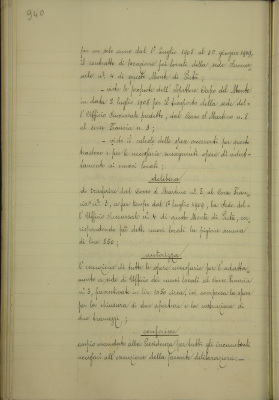 340
per un solo anno dal 1° luglio 1908 al 30 giugno 1909,
il contratto di locazione pei locali della sede Succur-
sale n. 4 di questo Monte di Pietà;
- viste le proposte dell'Ispettore Capo del Monte
in data 2 luglio 1908 per il trasporto della sede del-
l'Ufficio Succursale predetto, dal corso S. Martino n. 2
al corso Francia n. 2;
- visto il calcolo delle spese occorrenti per questo
trasloco e per le necessarie conseguenti opere di adat-
tamento ai nuovi locali;
delibera
di trasferire dal corso S. Martino n. 2 al corso Fran-
cia n. 2, e per tempo dal 1° luglio 1909, la sede del-
l'Ufficio Succursale n. 4 di questo Monte di Pietà, cor-
rispondendo pei detti nuovi locali la pigione annua
di lire 550;
autorizza
l'esecuzione di tutte le opere necessarie per l'adatta-
mento a sede di Ufficio dei nuovi locali di corso Francia
n. 2, preventivate in lire, ivi comprese le opere
per la chiusura di due aperture e la costruzione di
due tramezzi;
conferisce
ampio mandato alla Presidenza per tutti gli incombenti
necessari all'esecuzione della presente deliberazione.